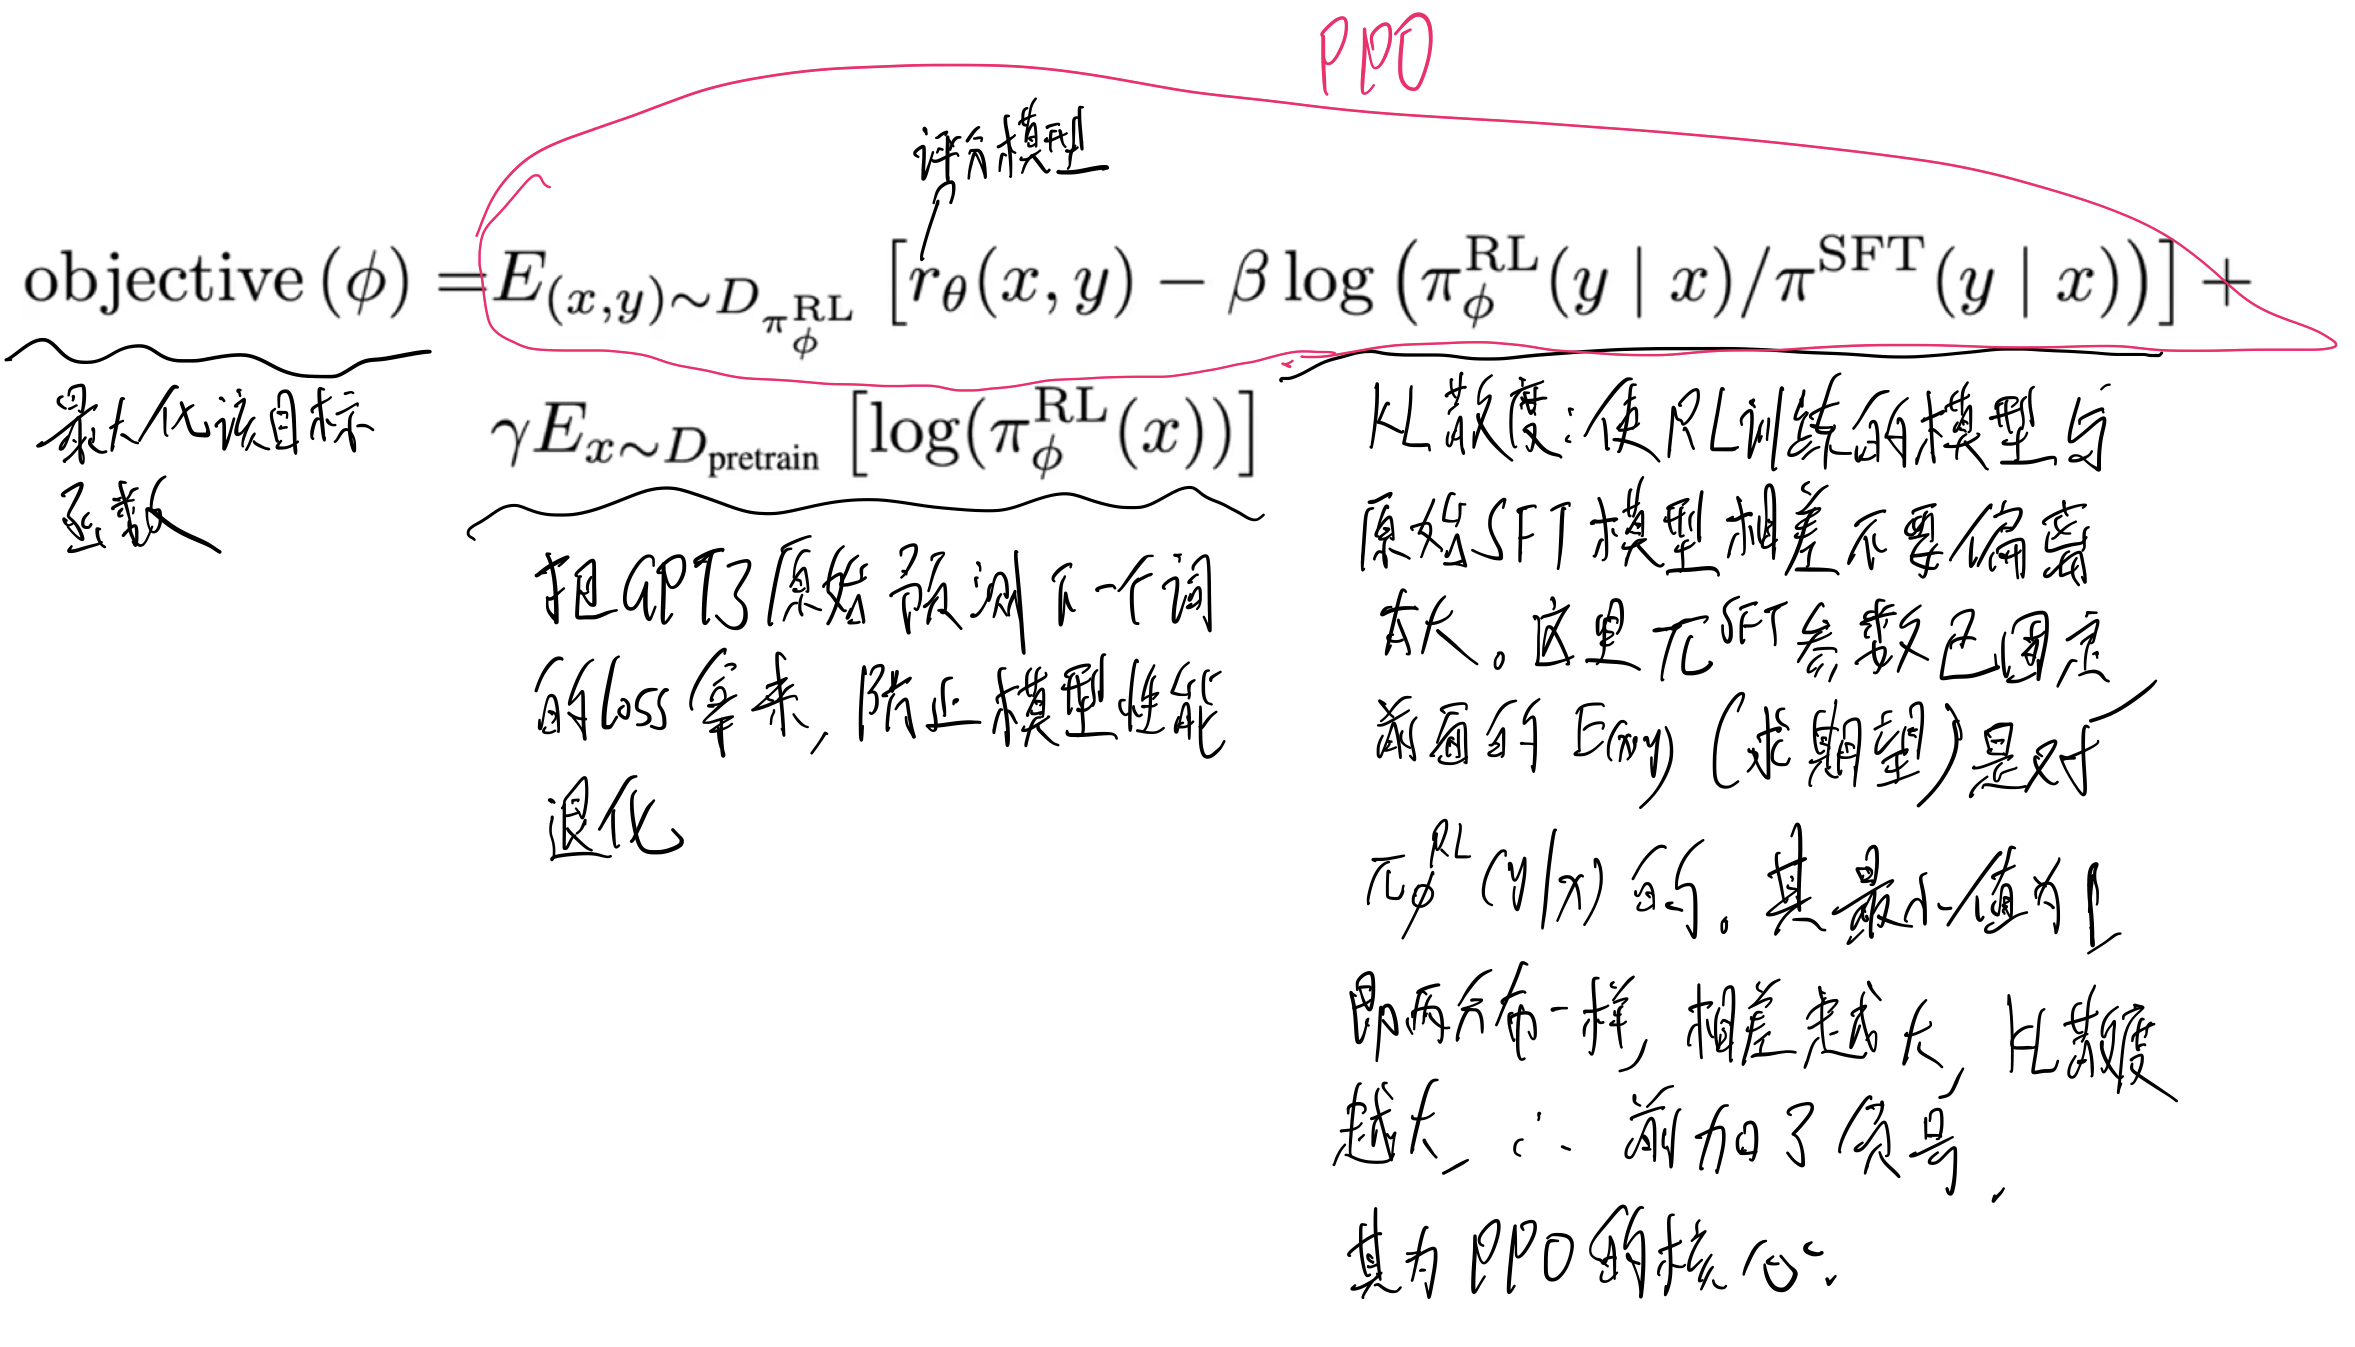 PPO
评分模型
objective (ϕ) = E_{(x,y)∼D_{π_ϕ^{RL}}} [r_θ(x, y) − β log (π_ϕ^{RL}(y | x)/π^{SFT}(y | x))] +
γE_{x∼D_{pretrain}} [log(π_ϕ^{RL}(x))]
最大化该目标
函数
把GPT3原始预测下一个词
的loss拿来,防止模型性能
退化
KL散度:使RL训练的模型与
原始SFT模型相差不要偏离
太大。这里π^{SFT}参数已固定
前面的E(x,y)(求期望)是对
π_ϕ^{RL}(y|x)的。其最小值为1
即两分布一样,相差越大,KL散度
越大,∴前加了负号,
其为PPO的核心.